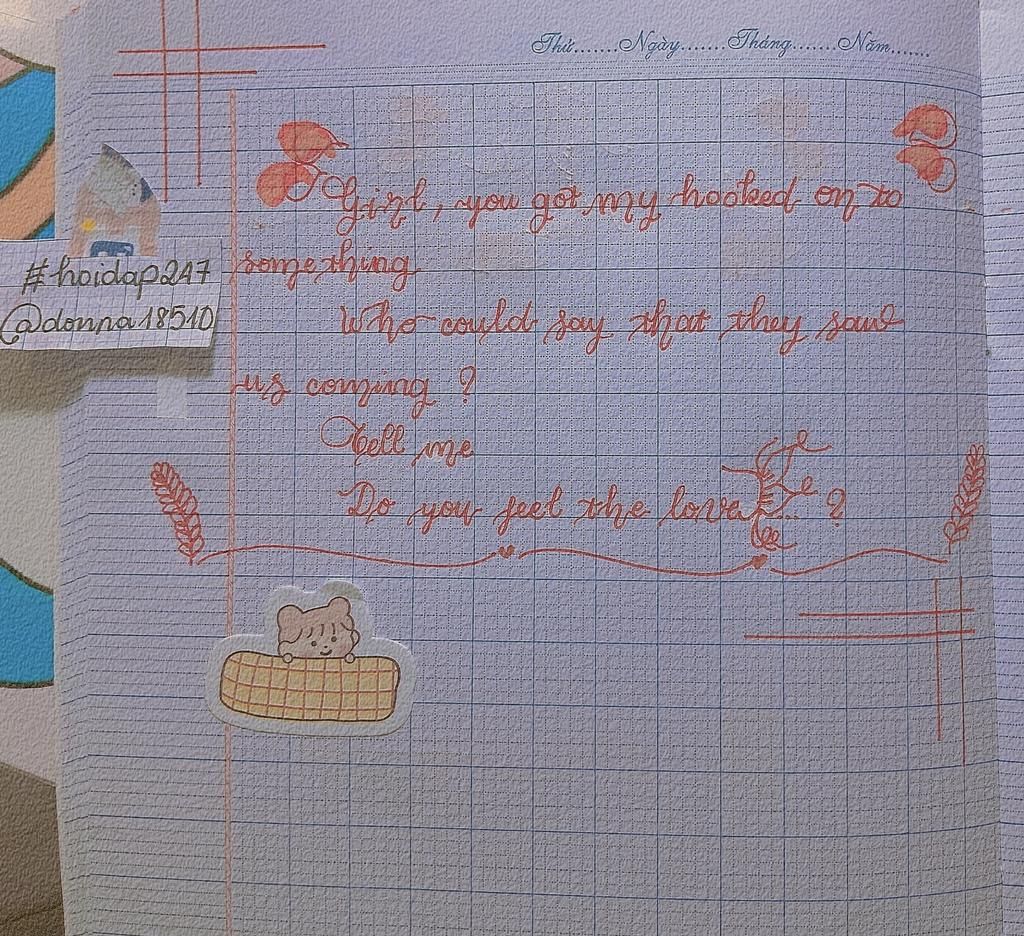 Thứ.......Ngày.......Tháng.......Năm.......
Girl, you got my hooked on to
something
#hoidap247
@donna18510
Who could say that they saw
us coming ?
Tell me
Do you feel the love... ?